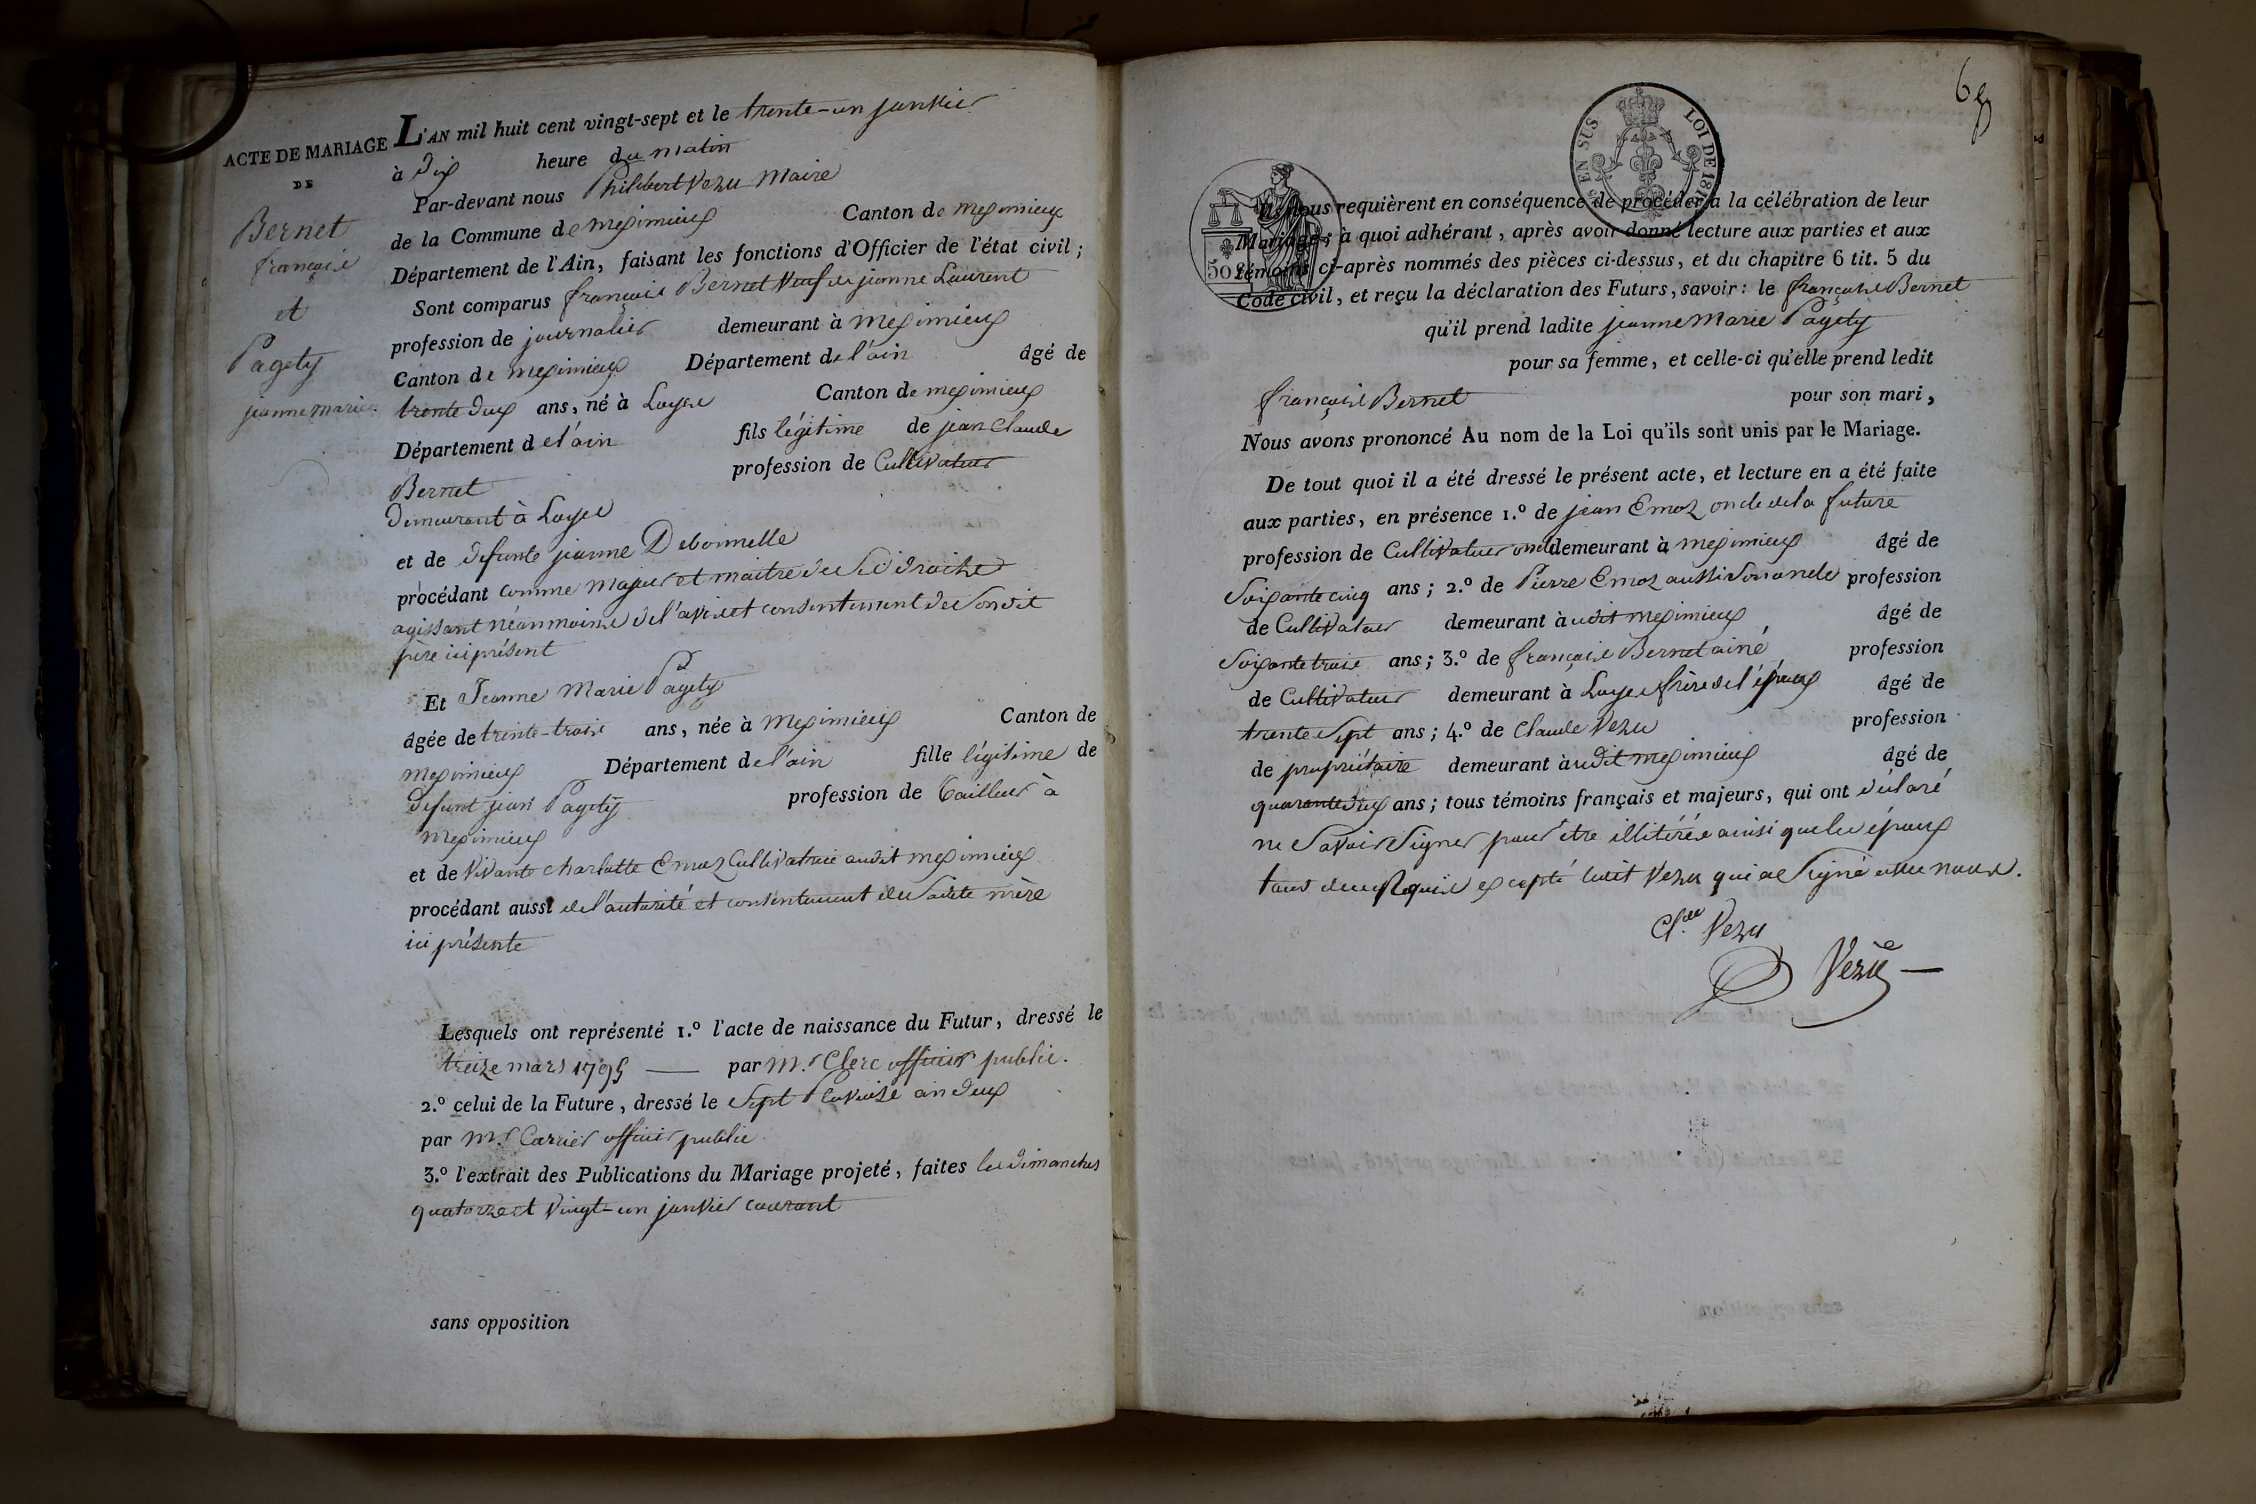 ACTE DE MARIAGE
DE
Bernet
françois
et
Pagety
jeanne marie.
L'AN mil huit cent vingt-sept et le trente-un janvier
à dix heure du matin
Par-devant nous Philibert Vezu Maire
de la Commune de meximieux Canton de meximieux
Département de l'Ain, faisant les fonctions d'Officier de l'état civil;
Sont comparus françois Bernet Veuf de jeanne Laurent
profession de journalier demeurant à meximieux
Canton de meximieux Département de l'ain âgé de
trente deux ans, né à Loyes Canton de meximieux
Département de l'ain fils légitime de jean Claude
Bernet profession de Cultivateur
demeurant à Loyes
et de defunte jeanne Debonnelle
procédant comme majeur et maitre de ses droits
agissant néanmoins de l'avis et consentement de Son dit
père ici présent
Et Jeanne Marie Pagety
âgée de trente-trois ans, née à Meximieux Canton de
meximieux Département de l'ain fille légitime de
defunt jean Pagety profession de Tailleur à
Meximieux
et de Vivante charlotte Emoz Cultivatrice audit meximieux
procédant aussi de l'autorité et consentement de Sadite mère
ici présente
Lesquels ont représenté 1.º l'acte de naissance du Futur, dressé le
treize mars 1795 — par M.r Clerc officier public.
2.º celui de la Future, dressé le Sept Pluviose an deux
par M.r Carrier officier public
3.º l'extrait des Publications du Mariage projeté, faites les dimanches
quatorze et vingt-un janvier courant
sans opposition
EN SUS
LOI DE 181
50
Ils nous requièrent en conséquence de procéder à la célébration de leur
Mariage; à quoi adhérant, après avoir donné lecture aux parties et aux
témoins ci-après nommés des pièces ci-dessus, et du chapitre 6 tit. 5 du
Code civil, et reçu la déclaration des Futurs, savoir: le françois Bernet
qu'il prend ladite jeanne Marie Pagety
pour sa femme, et celle-ci qu'elle prend ledit
françois Bernet pour son mari,
Nous avons prononcé Au nom de la Loi qu'ils sont unis par le Mariage.
De tout quoi il a été dressé le présent acte, et lecture en a été faite
aux parties, en présence 1.º de jean Emoz oncle de la future
profession de Cultivateur demeurant à meximieux âgé de
Soixante cinq ans; 2.º de Pierre Emoz aussi Son oncle profession
de Cultivateur demeurant à udit meximieux âgé de
Soixante trois ans; 3.º de françois Bernet ainé profession
de Cultivateur demeurant à Loyes frère de l'époux âgé de
trente Sept ans; 4.º de Claude Vezu profession
de propriétaire demeurant à udit meximieux âgé de
quarante dix ans; tous témoins français et majeurs, qui ont déclaré
ne Savoir Signer pour être illitérés ainsi que les époux
tous deux Requis excepté ledit Vezu qui a Signé avec nous.
Cl.de Vezu
Vezu